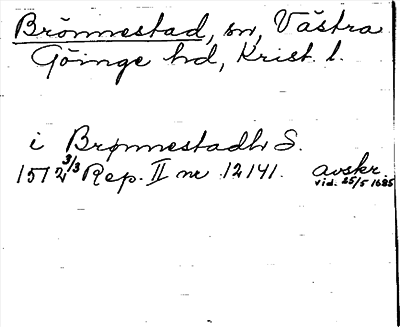 Brönnestad, sn, Västra
Göinge hd, Krist. l.
i Brønnestadh S.
1512 3/3 Rep. II nr 12141. avskr.
vid. 25/5 1685